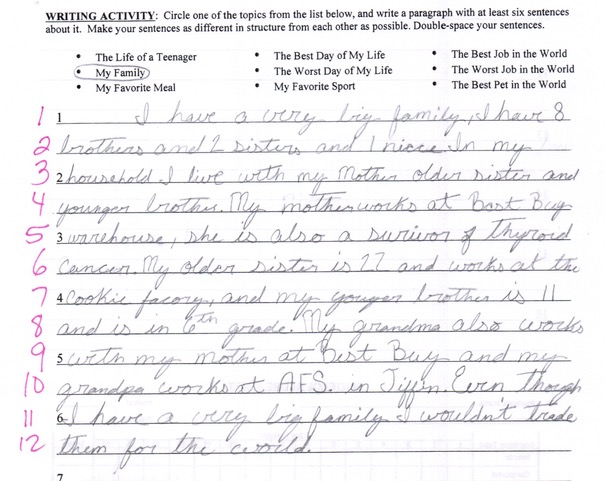 WRITING ACTIVITY: Circle one of the topics from the list below, and write a paragraph with at least six sentences
about it. Make your sentences as different in structure from each other as possible. Double-space your sentences.
• The Life of a Teenager • The Best Day of My Life • The Best Job in the World
• My Family • The Worst Day of My Life • The Worst Job in the World
• My Favorite Meal • My Favorite Sport • The Best Pet in the World
1 1 I have a very big family, I have 8
2 brothers and 2 sisters and 1 niece. In my
3 2 household I live with my Mother older sister and
4 younger brother. My mother works at Best Buy
5 3 warehouse, she is also a surivor of thyroid
6 Cancer. My older sister is 27 and works at the
7 4 Cookie facory, and my youger brother is 11
8 and is in 6th grade. My grandma also works
9 5 with my mother at Best Buy and my
10 grandpa works at AFS. in Tiffin. Even though
11 6 I have a very big family I wouldn't trade
12 them for the world.
7